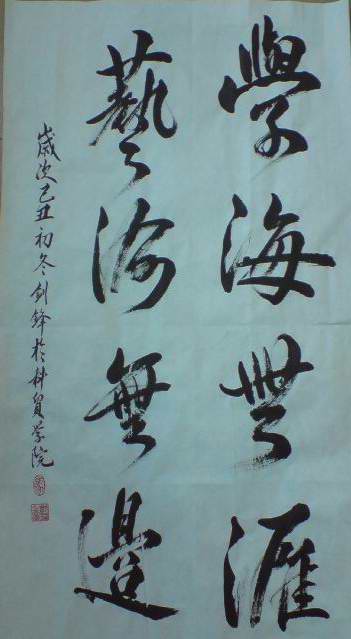 學海無涯
藝無邊
歲次己丑初冬剑鋒於科貿学院